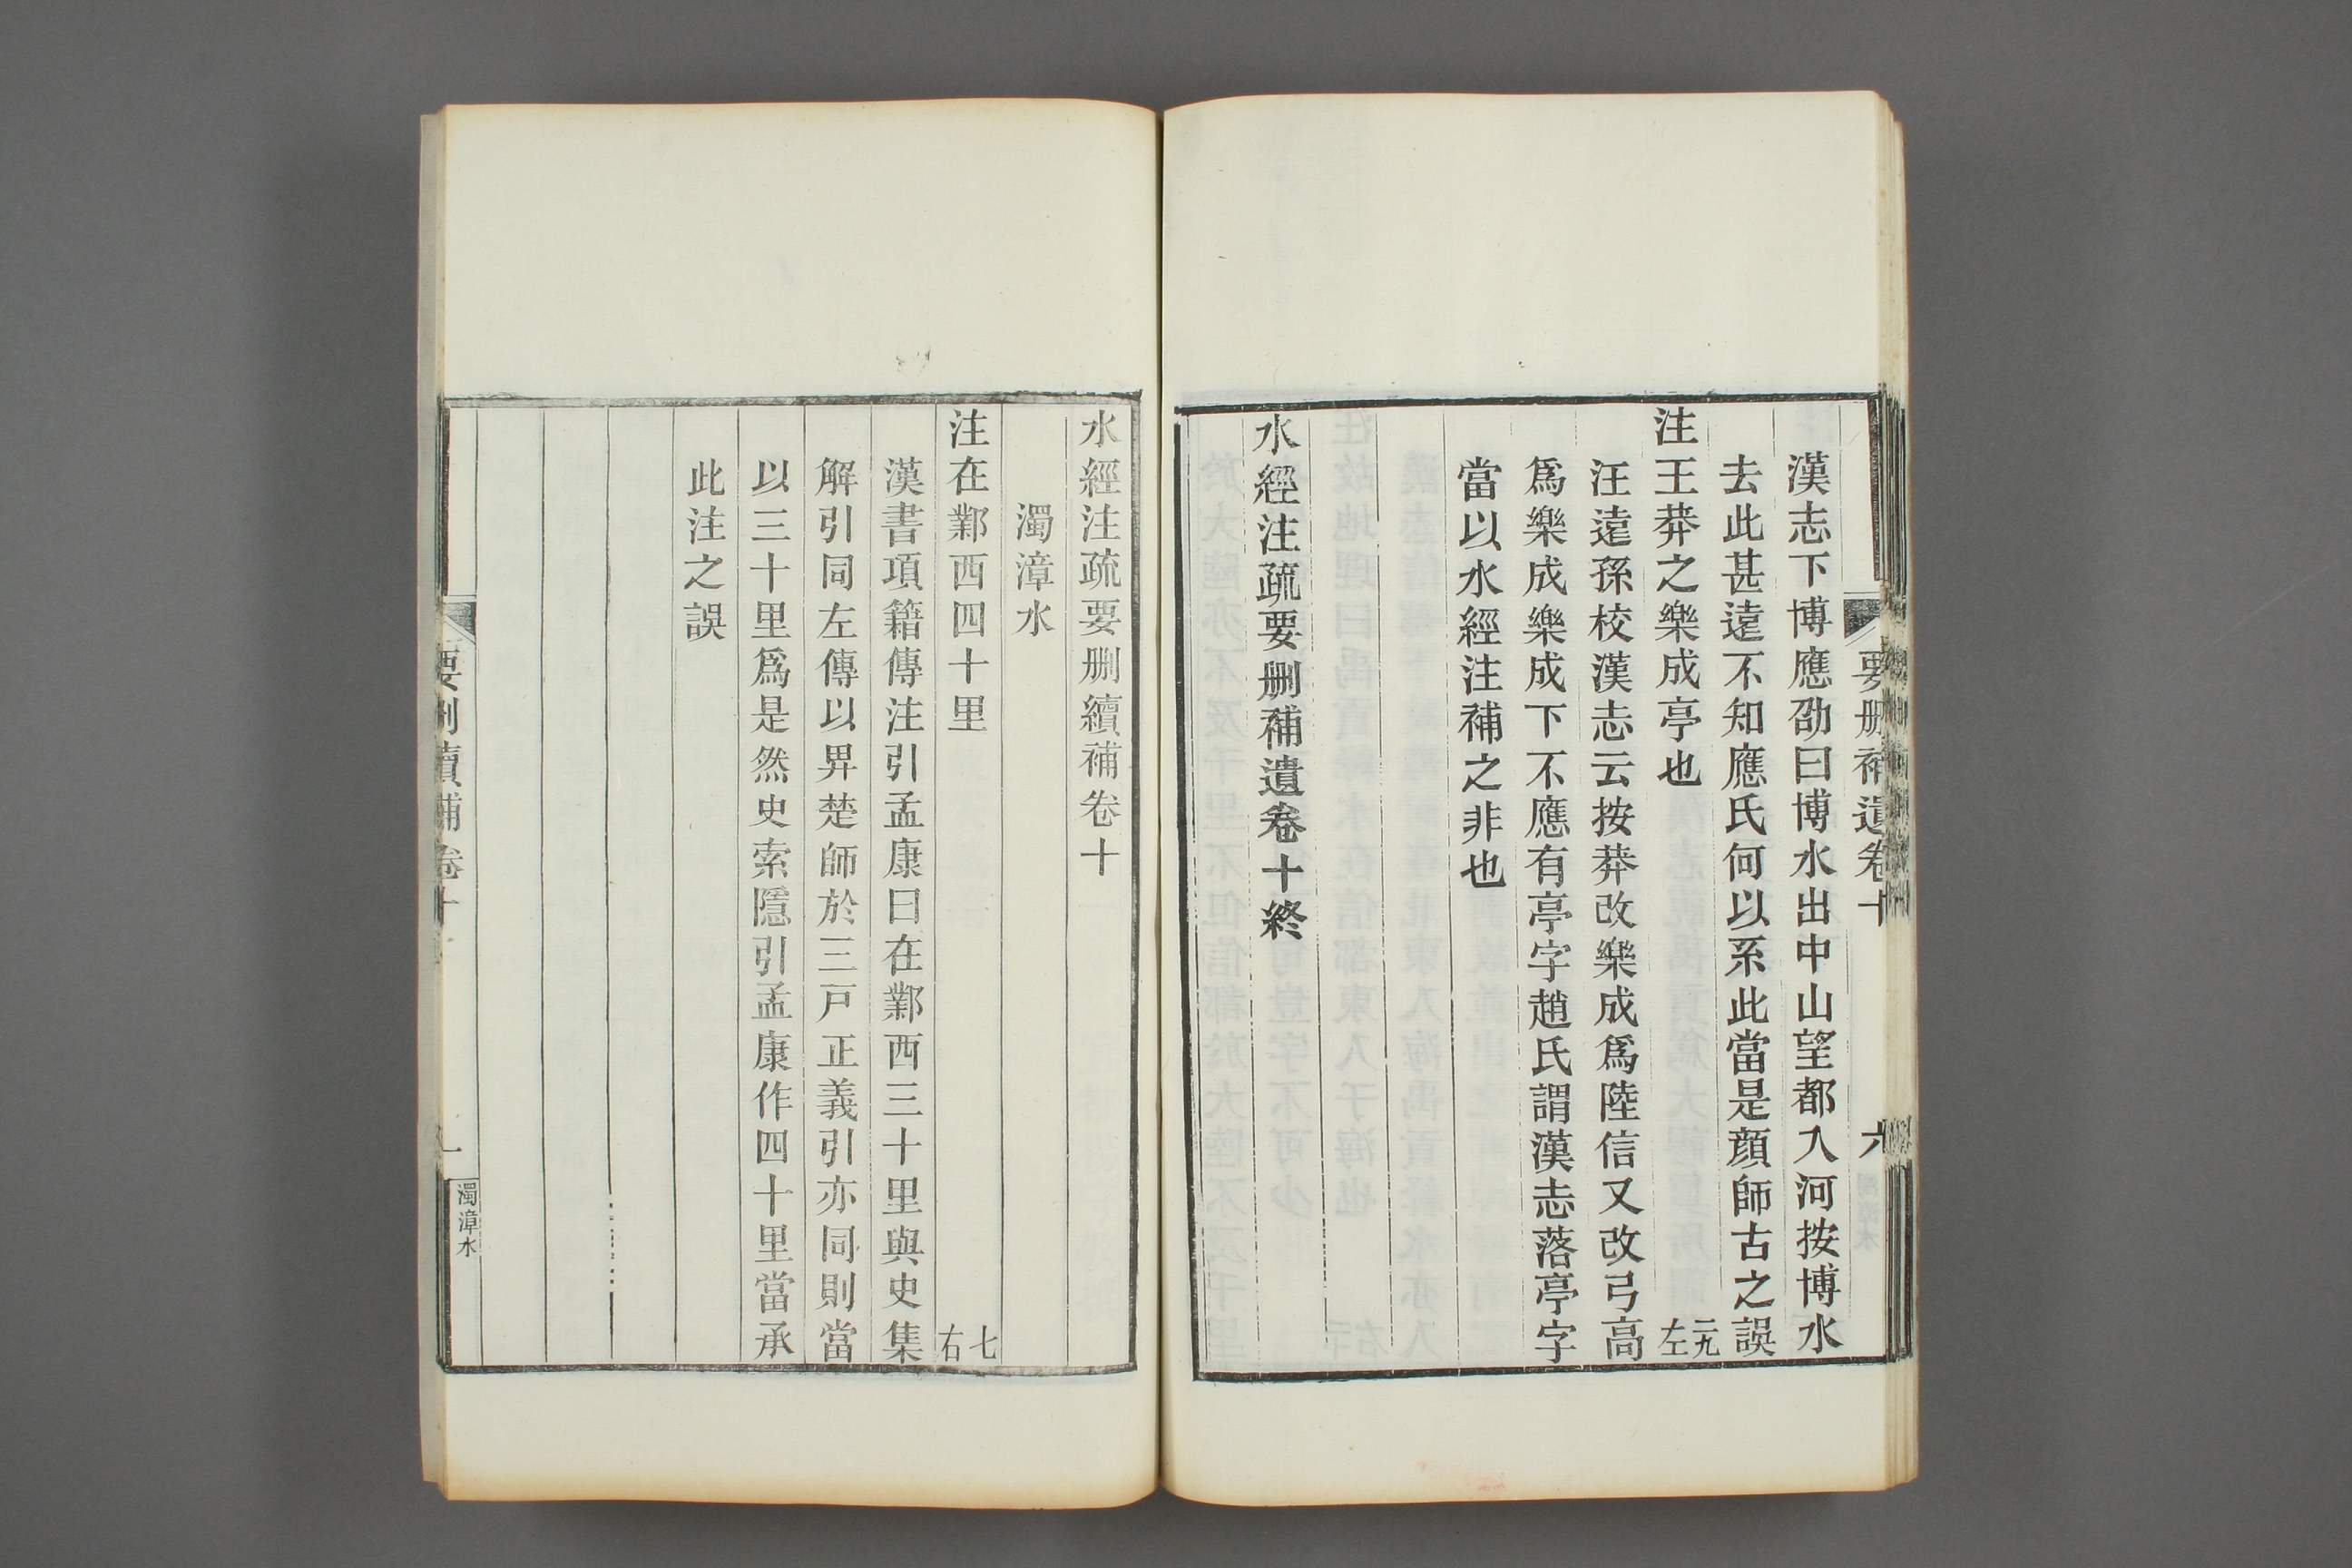 要删補遺卷十
六
漢志下博應劭曰博水出中山望都入河按博水
去此甚遠不知應氏何以系此當是顔師古之誤
注王莽之樂成亭也 二九左
汪遠孫校漢志云按莽改樂成爲陸信又改弓高
爲樂成樂成下不應有亭字趙氏謂漢志落亭字
當以水經注補之非也
水經注疏要删補遺卷十終
水經注疏要删續補卷十
濁漳水
注在鄴西四十里 七右
漢書項籍傳注引孟康曰在鄴西三十里與史集
解引同左傳以畀楚師於三戸正義引亦同則當
以三十里爲是然史索隱引孟康作四十里當承
此注之誤
要删續補卷十
一
濁漳水